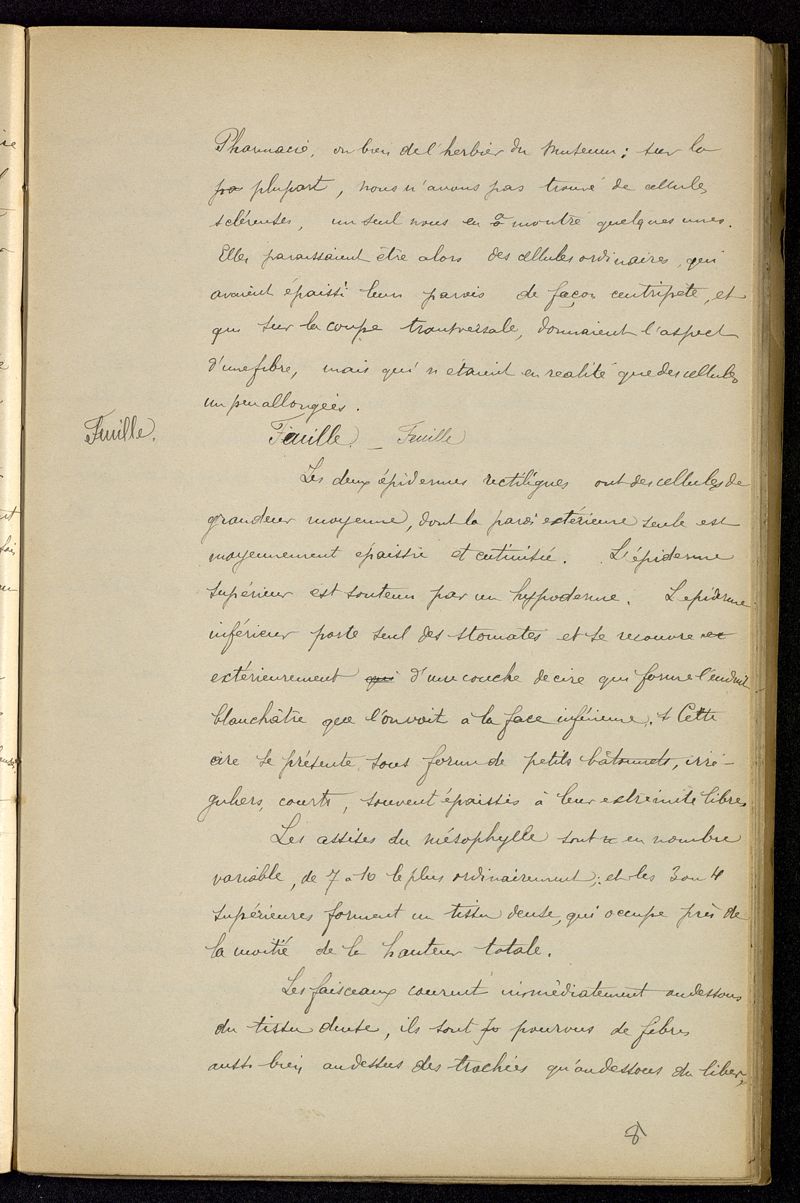 Pharmacie, ou bien de l'herbier du Museum ; sur la
pa plupart, nous n'avons pas trouvé de cellules
scléreuses, un seul nous en a montré quelques unes.
Elles paraissaient être alors des cellules ordinaires, qui
avaient épaissi leurs parois de façon centripète, et
qui sur la coupe transversale, donnaient l'aspect
d'une fibre, mais qui n'étaient en realité que des cellules
un peu allongées.
Feuille.
Feuille. _ Feuille
Les deux épidermes rectilignes ont des cellules de
grandeur moyenne, dont la paroi extérieure seule est
moyennement épaissie et cutinisée. L'épiderme
supérieur est soutenu par un hypoderme. L'epiderme
inférieur porte seul des stomates et se recouvre
extérieurement qui d'une couche de cire qui forme l'enduit
blanchâtre que l'on voit à la face inférieure. Cette
cire se présente sous forme de petits bâtonnets, irré-
guliers, courts, souvent épaissis à leur extremité libre.
Les assises du mésophylle sont en nombre
variable, de 7 à 10 le plus ordinairement ; et les 3 ou 4
supérieures forment un tissu dense, qui occupe près de
la moitié de la hauteur totale.
Les faisceaux courent immédiatement au dessous
du tissu dense, ils sont pourvus de fibres
aussi bien au dessus des trachées qu'au dessous du liber,
8